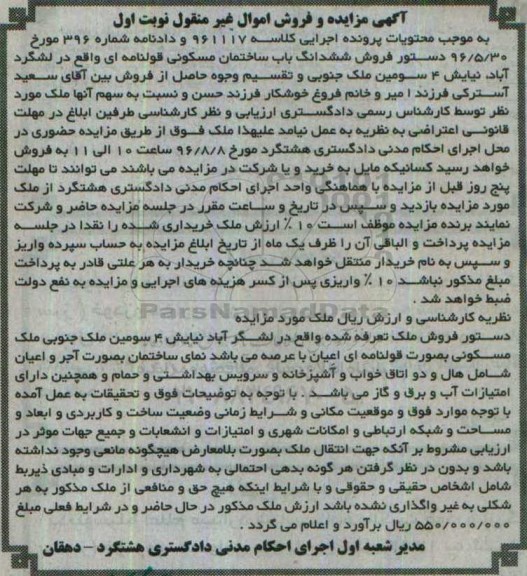 آگهی مزایده و فروش اموال غیر منقول نوبت اول
به موجب محتویات پرونده اجرایی کلاسه ۹۶۱۱۱۷ و دادنامه شماره ۳۹۶ مورخ
۹۶/۵/۳۰ دستور فروش ششدانگ باب ساختمان مسکونی قولنامه ای واقع در لشگرد
آباد، نیایش ۴ سومین ملک جنوبی و تقسیم وجوه حاصل از فروش بین آقای سعید
آسترکی فرزند امیر و خانم فروغ خوشکار فرزند حسن و نسبت به سهم آنها ملک مورد
نظر توسط کارشناس رسمی دادگستری ارزیابی و نظر کارشناسی طرفین ابلاغ در مهلت
قانونی اعتراضی به نظریه به عمل نیامد علیهذا ملک فوق از طریق مزایده حضوری در
محل اجرای احکام مدنی دادگستری هشتگرد مورخ ۹۶/۸/۸ ساعت ۱۰ الی ۱۱ به فروش
خواهد رسید کسانیکه مایل به خرید و یا شرکت در مزایده می باشند می توانند تا مهلت
پنج روز قبل از مزایده با هماهنگی واحد اجرای احکام مدنی دادگستری هشتگرد از ملک
مورد مزایده بازدید و سپس در تاریخ و ساعت مقرر در جلسه مزایده حاضر و شرکت
نمایند برنده مزایده موظف است ۱۰ ٪ ارزش ملک خریداری شده را نقدا در جلسه
مزایده پرداخت و الباقی آن را ظرف یک ماه از تاریخ ابلاغ مزایده به حساب سپرده واریز
و سپس به نام خریدار منتقل خواهد شد چنانچه خریدار به هر علتی قادر به پرداخت
مبلغ مذکور نباشد ۱۰ ٪ واریزی پس از کسر هزینه های اجرایی و مزایده به نفع دولت
ضبط خواهد شد .
نظریه کارشناسی و ارزش ریال ملک مورد مزایده
دستور فروش ملک تعرفه شده واقع در لشگر آباد نیایش ۴ سومین ملک جنوبی ملک
مسکونی بصورت قولنامه ای اعیان با عرصه می باشد نمای ساختمان بصورت آجر و اعیان
شامل هال و دو اتاق خواب و آشپزخانه و سرویس بهداشتی و حمام و همچنین دارای
امتیازات آب و برق و گاز می باشد . با توجه به توضیحات فوق و تحقیقات به عمل آمده
با توجه موارد فوق و موقعیت مکانی و شرایط زمانی وضعیت ساخت و کاربردی و ابعاد و
مساحت و شبکه ارتباطی و امکانات شهری و امتیازات و انشعابات و جمیع جهات موثر در
ارزیابی مشروط بر آنکه جهت انتقال ملک بصورت بلامعارض هیچگونه مانعی وجود نداشته
باشد و بدون در نظر گرفتن هر گونه بدهی احتمالی به شهرداری و ادارات و مبادی ذیربط
شامل اشخاص حقیقی و حقوقی و با شرایط اینکه هیچ حق و منافعی از ملک مذکور به هر
شکلی به غیر واگذاری نشده باشد ارزش ملک مذکور در حال حاضر و در شرایط فعلی مبلغ
۵۵۰/۰۰۰/۰۰۰ ریال برآورد و اعلام می گردد .
مدیر شعبه اول اجرای احکام مدنی دادگستری هشتگرد - دهقان
ParsNamadData